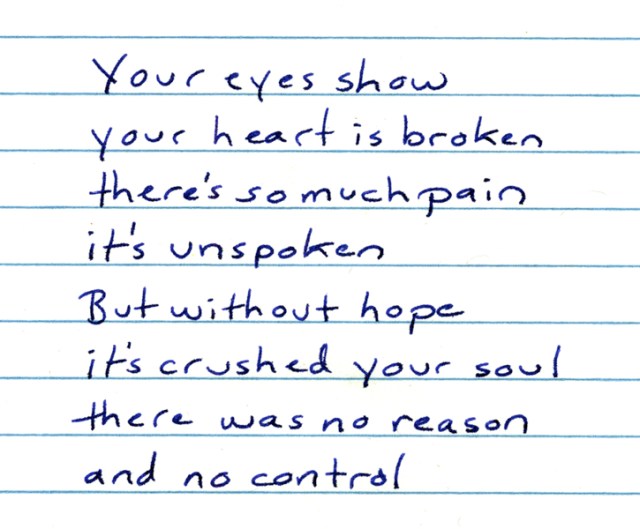 Your eyes show
your heart is broken
there's so much pain
it's unspoken
But without hope
it's crushed your soul
there was no reason
and no control